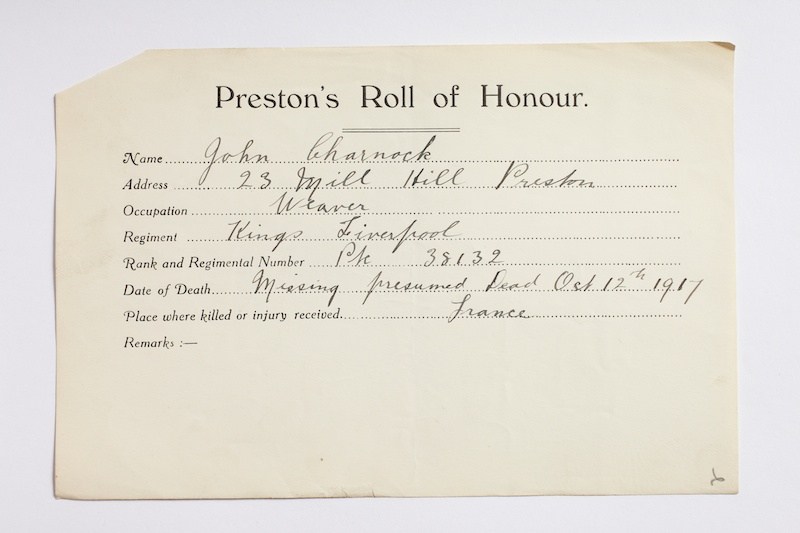 Preston's Roll of Honour.
Name John Charnock
Address 23 Mill Hill Preston
Occupation Weaver
Regiment Kings Liverpool
Rank and Regimental Number Pte 38132
Date of Death Missing presumed Dead Oct 12th 1917
Place where killed or injury received France
Remarks :—